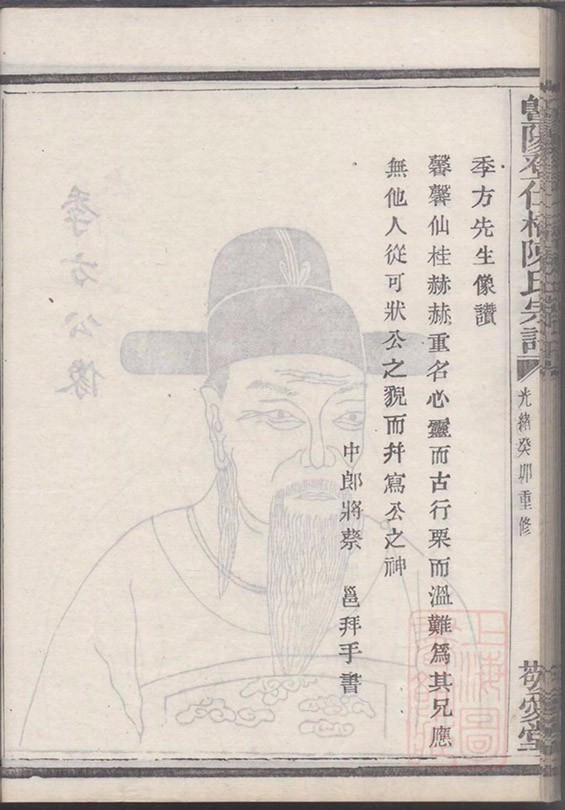 暨陽登仕橋陳氏宗譜
光緒癸卯重修
敬愛堂
季方先生像讚
馨馨仙桂赫赫重名心靈而古行栗而溫難為其兄應
無他人從可狀公之貌而幷寫公之神
中郎將蔡 邕拜手書
季方公像
上海圖